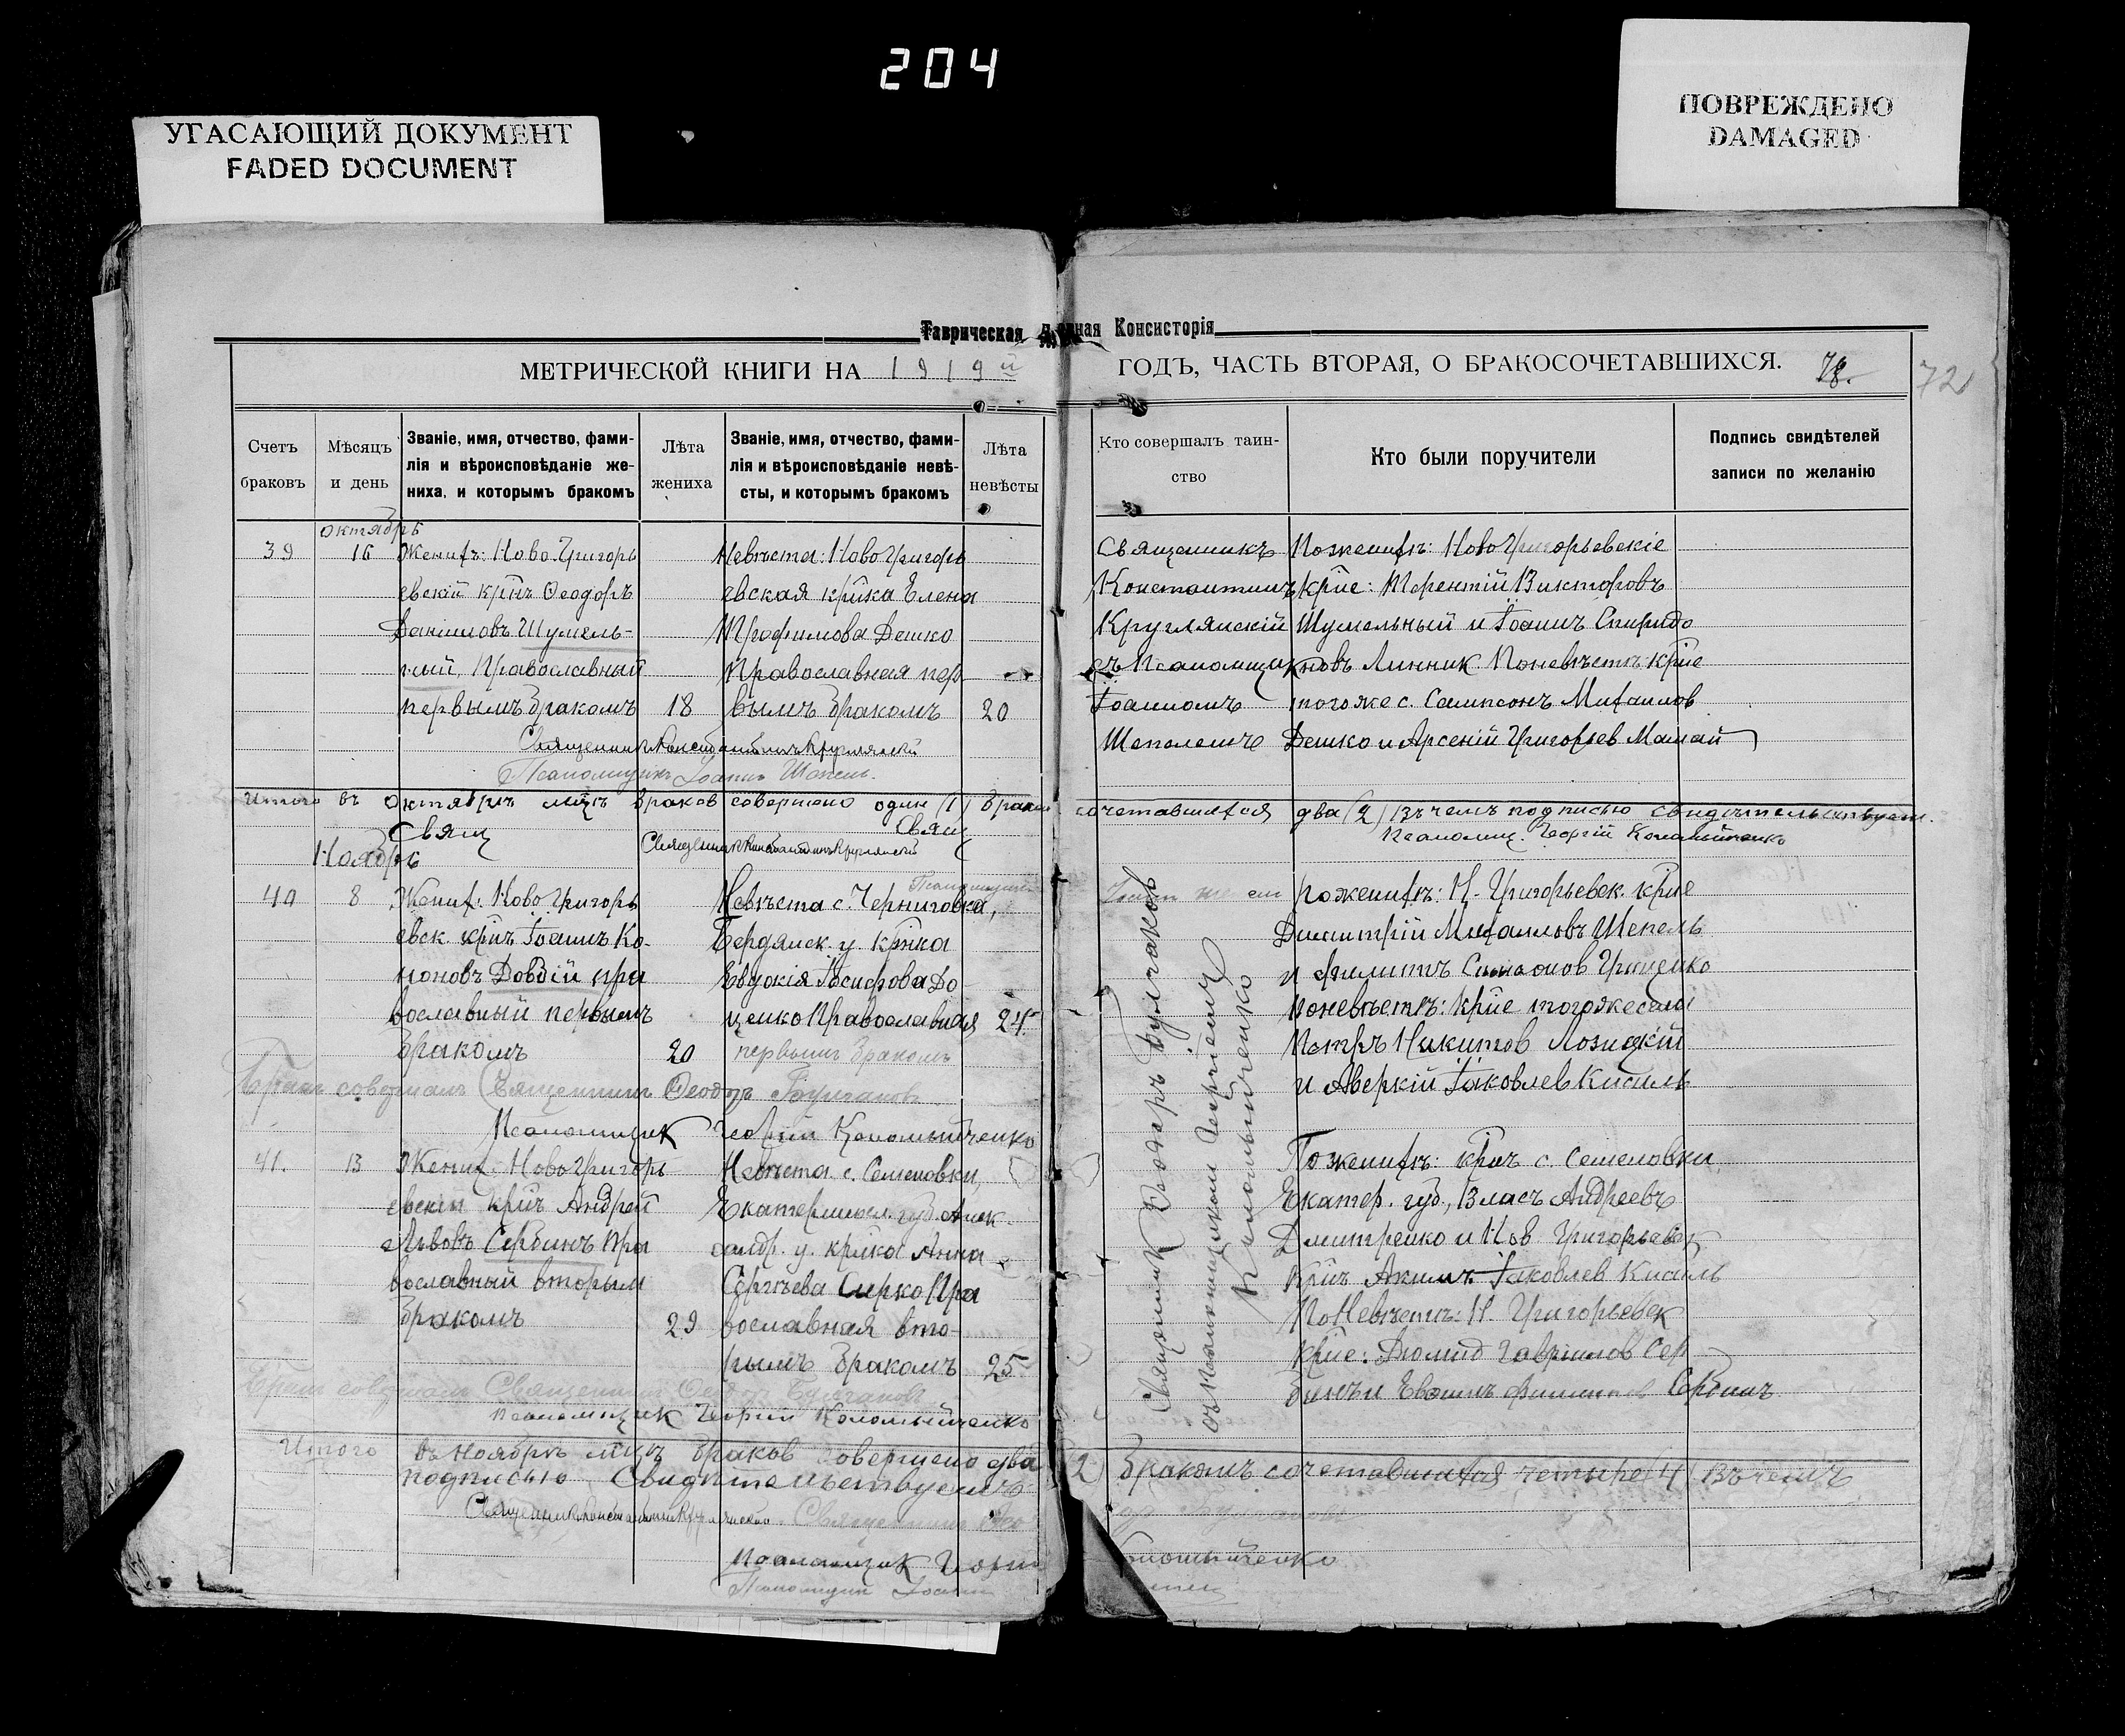 204
УГАСАЮЩИЙ ДОКУМЕНТ
FADED DOCUMENT
ПОВРЕЖДЕНО
DAMAGED
Таврическая
Консисторія
МЕТРИЧЕСКОЙ КНИГИ НА 1919й
ГОДЪ, ЧАСТЬ ВТОРАЯ, О БРАКОСОЧЕТАВШИХСЯ.
72
Счетъ браковъ
Мѣсяцъ и день
Званіе, имя, отчество, фами-
лія и вѣроисповѣданіе же-
ниха, и которымъ бракомъ
Лѣта жениха
Званіе, имя, отчество, фами-
лія и вѣроисповѣданіе невѣ-
сты, и которымъ бракомъ
Лѣта невѣсты
Кто совершалъ таин-
ство
Кто были поручители
Подпись свидѣтелей
записи по желанію
октябрь
39
16
Женихъ: Ново Григорь
евскій кр̃нъ Ѳеодоръ
Даніиловъ Шумель-
ный, Православный
первымъ бракомъ
18
Невѣста: Ново Григорь
евская кр̃нка Елена
Трофимова Дешко
Православная пер
вымъ бракомъ
20
Священникъ
Константинъ
Круглянскій
съ Псаломщик
Іоанномъ
Шепелемъ
Поженихѣ: Ново Григорьевскіе
кр̃не: Терентій Викторовъ
Шумельный и Іоаннъ Спиридо
новъ Линник. Поневѣстѣ: кр̃не
тогоже с. Сампсонъ Михаилов
Дешко и Арсеній Григорьев Мамай
Священникъ Константинъ Круглянскій
Псаломщикъ Іоаннъ Шепель.
Итого въ Октябрѣ мцѣ браков совершено один (1) браком
сочетавшихся два (2) въ чемъ подписью свидѣтельствуем.
Свящ
Свящ
Священникъ Константинъ Круглянскій
Псаломщ. Георгій Коломыйченко
Ноябрь
Псаломщикъ
40
8
Жених: Ново Григорь
евск. кр̃нъ Іоаннъ Ко-
ноновъ Довбій пра
вославный первымъ
бракомъ
20
Невѣста с. Черниговка,
Бердянск. у. кр̃нка
Евдокія Іосифова До
ценко Православная
первымъ бракомъ
24
Поженихѣ: Н-Григорьевск. кр̃не
Димитрій Михаиловъ Шепель
и Филиппъ Симеонов Гриценко
Поневѣстѣ: кр̃не тогоже села
Петръ Никитов Лозицкій
и Аверкій Іаковлев Кисиль
Бракъ совершалъ Священникъ Ѳеодоръ Булгаковъ
Псаломщик Георгій Коломыйченко
Священник Ѳеодоръ Булгаковъ
съ Псаломщиком Георгіемъ
Коломыйченко
41.
13
Жених: Ново Григорь
евскій кр̃нъ Андрей
Львовъ Сербинъ Пра
вославный вторым
бракомъ
29
Невѣста с. Семеновки,
Екатериносл. губ. Алек
сандр. у. кр̃нка Анна
Сергѣева Сирко Пра
вославная вто-
рымъ бракомъ
25
Поженихѣ: кр̃нъ с. Семеновки
Екатер. губ., Власъ Андреевъ
Дмитренко и Нов Григорьевск
кр̃нъ Акимъ Іаковлев Кисиль
Поневѣстѣ: Н. Григорьевск
кр̃не: Діомид Гаврилов Сер
бинъ и
Сербинъ
Бракъ совершалъ Священникъ Ѳеодор Булгаковъ
Псаломщик Георгій Коломыйченко
Итого въ Ноябрѣ мцѣ браков совершено два (2) бракомъ сочетавшихся четыре (4) въ чемъ
подписью свидѣтельствуемъ
Священникъ Константинъ Круглянскій Священникъ
Псаломщик Георгій Коломыйченко
Псаломщик Іоаннъ